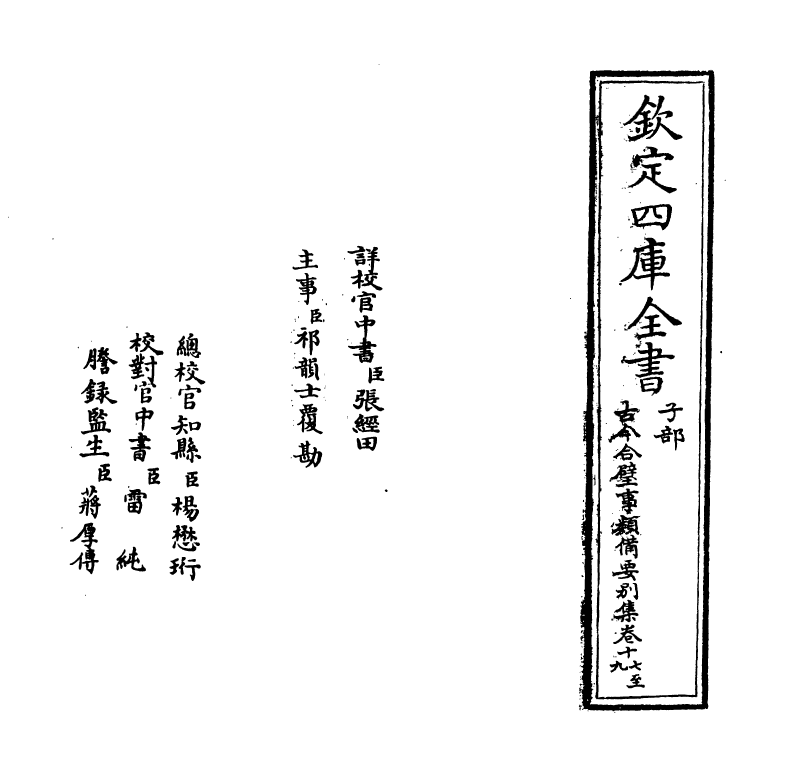 欽定四庫全書
子部
古今合璧事類備要別集卷十七至
九
詳校官中書臣張經田
主事臣祁韻士覆勘
總校官知縣臣楊懋珩
校對官中書臣雷純
謄錄監生臣蔣厚傳